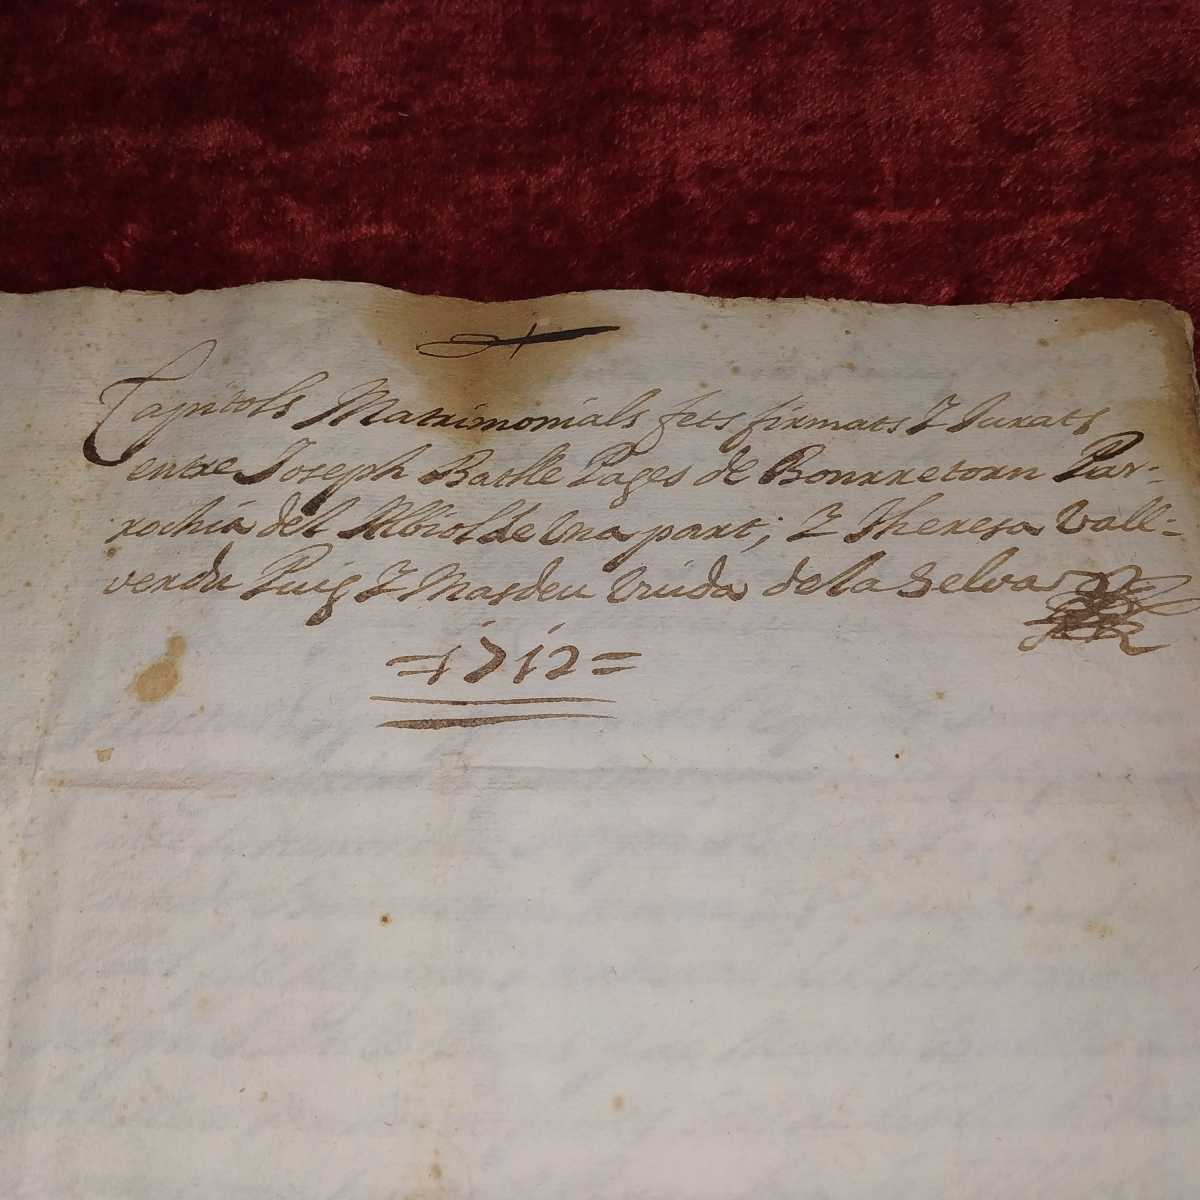 Capitols Matrimonials fets firmats Y Jurats
entre Joseph Batlle Pages de Bonrretorn Par-
rochia del Albiol de Una part; Y Theresa Vall=
verdu Puig Y Masdeu Viuda de la Selva
=1712=